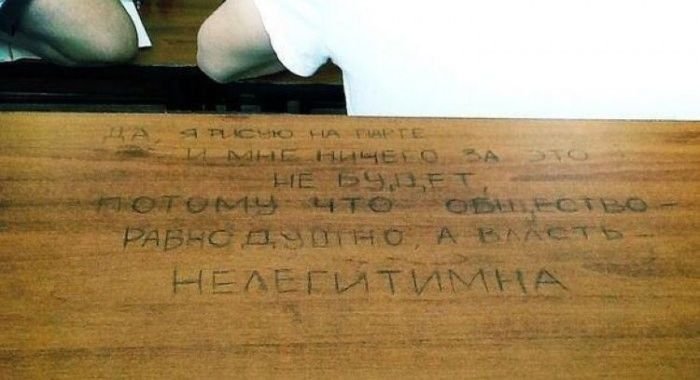 ДА, Я РИСУЮ НА ПАРТЕ
И МНЕ НИЧЕГО ЗА ЭТО
НЕ БУДЕТ,
ПОТОМУ ЧТО ОБЩЕСТВО -
РАВНОДУШНО, А ВЛАСТЬ -
НЕЛЕГИТИМНА